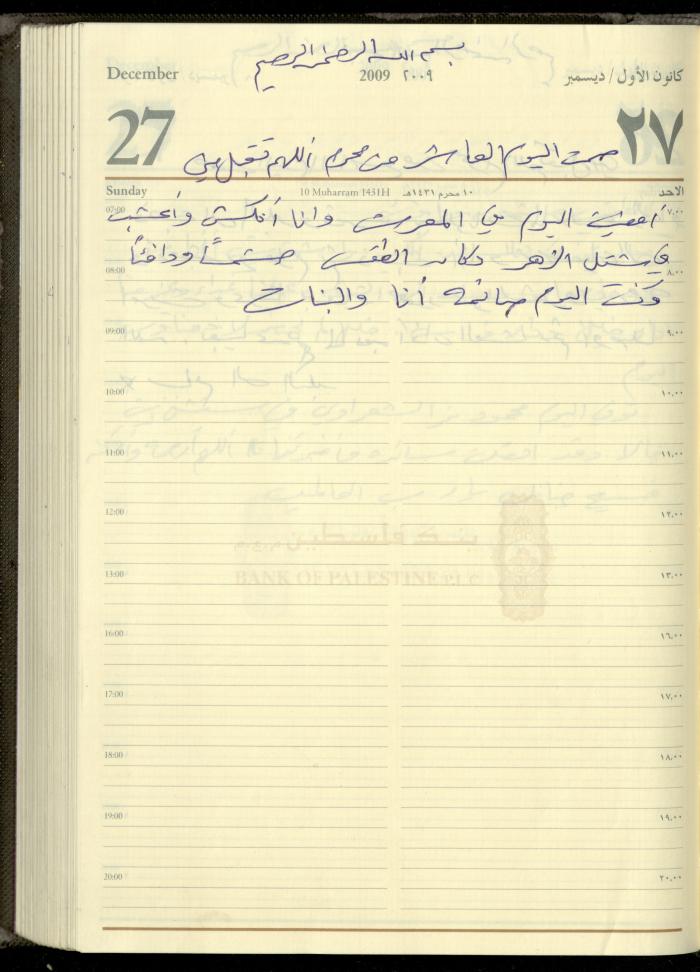 بسم الله الرحمن الرحيم
December 2009 ٢٠٠٩ كانون الأول / ديسمبر
27 ٢٧
صمت اليوم العاشر من محرم اللهم تقبل مني
Sunday 10 Muharram 1431H ١٠ محرم ١٤٣١هـ الاحد
07:00 ٧,٠٠
أمضيت اليوم في المعرش وانا أنكش وأعشب
في مشتل الزهر وكان الطقس مشمساً ودافئاً
08:00 ٨,٠٠
وكنت اليوم صائمه أنا والبنات
09:00 ٩,٠٠
10:00 ١٠,٠٠
11:00 ١١,٠٠
12:00 ١٢,٠٠
بنك فلسطين
BANK OF PALESTINE P.L.C
13:00 ١٣,٠٠
16:00 ١٦,٠٠
17:00 ١٧,٠٠
18:00 ١٨,٠٠
19:00 ١٩,٠٠
20:00 ٢٠,٠٠